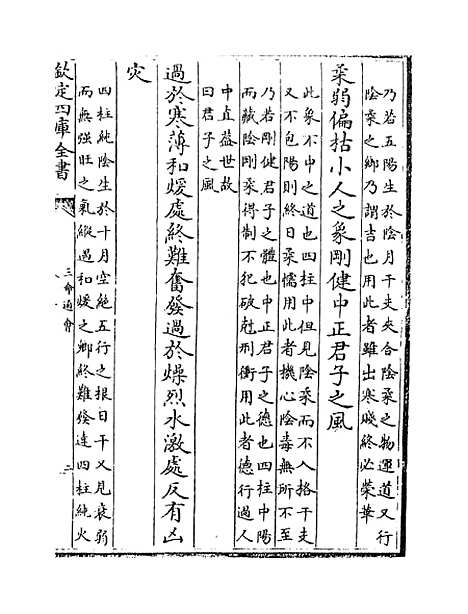 乃若五陽生於陰月干支夾合陰柔之物運道又行
陰柔之鄉乃謂吉也用此者雖出寒賤終必榮華
柔弱偏枯小人之象剛健中正君子之風
此象不中之道也四柱中但見陰柔而不入格干支
又不包陽則終日柔懦用此者機心陰毒無所不至
乃若剛健君子之體也中正君子之德也四柱中陽
而藏陰剛柔得制不犯破尅刑衝用此者德行過人
中直葢世故
曰君子之風
過於寒薄和煖處終難奮發過於燥烈水激處反有凶
災
四柱純陰生於十月空絶五行之根日干又見衰弱
而無强旺之氣縱遇和煖之鄉終難發達四柱純火
欽定四庫全書
三命通會
三